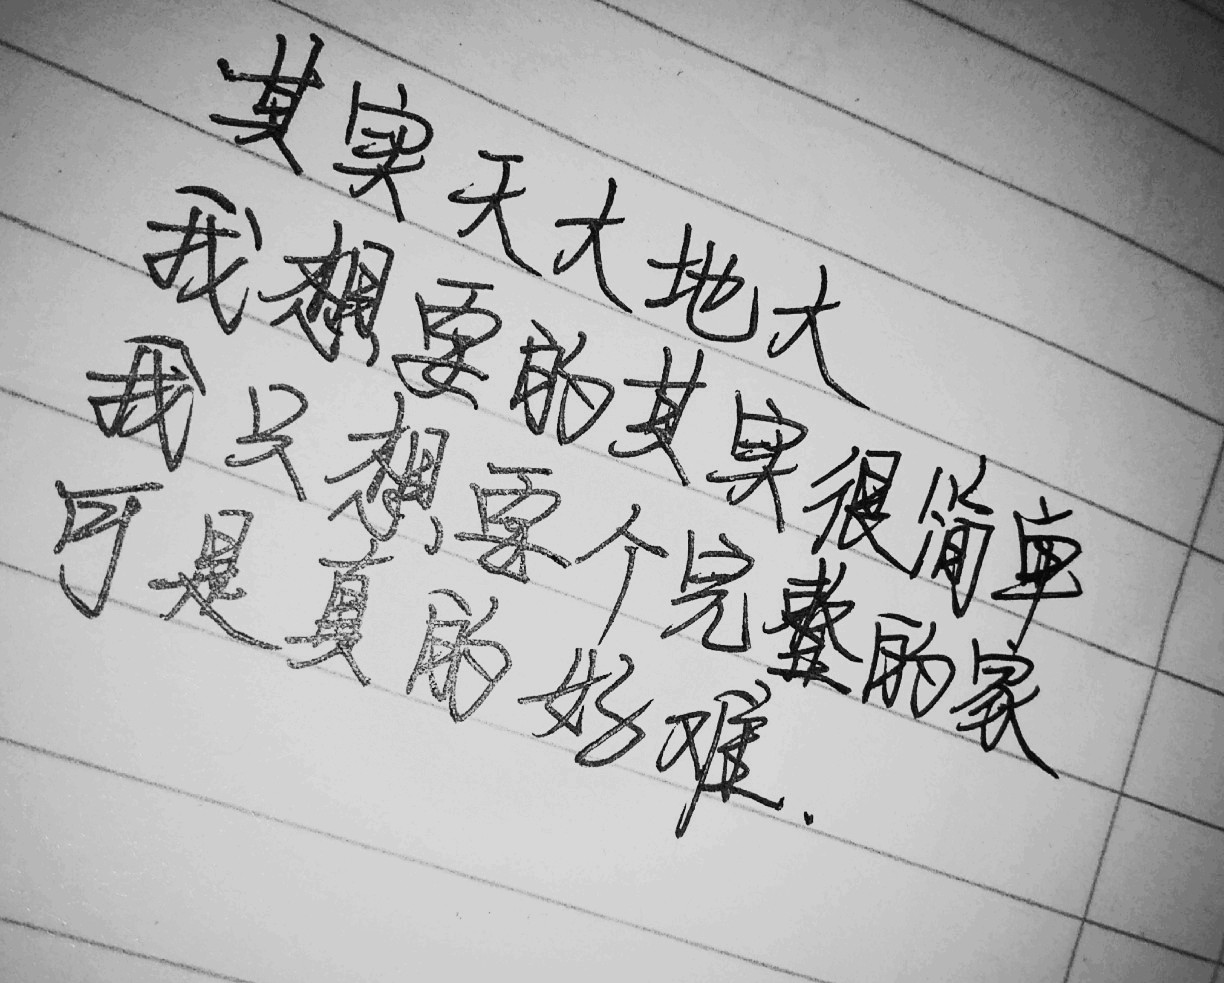 其实天大地大
我想要的其实很简单
我只想要个完整的家
可是真的好难.